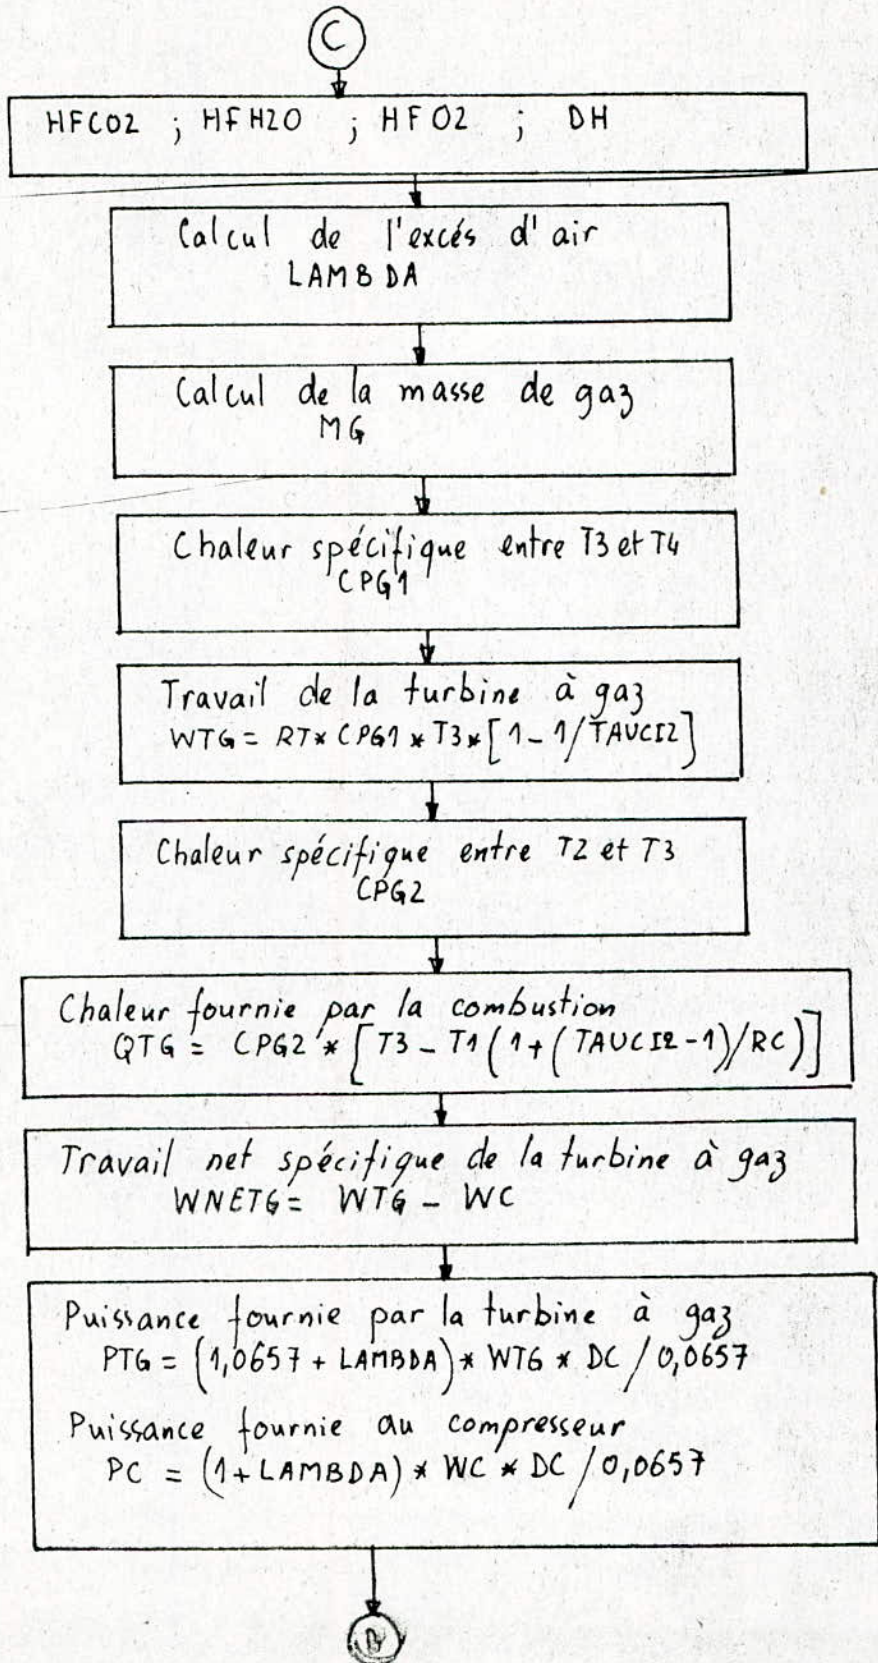 C
HFCO2 ; HFH2O ; HFO2 ; DH
Calcul de l'excés d'air
LAMBDA
Calcul de la masse de gaz
MG
Chaleur spécifique entre T3 et T4
CPG1
Travail de la turbine à gaz
WTG = RT* CPG1 * T3*[1-1/TAUCI2]
Chaleur spécifique entre T2 et T3
CPG2
Chaleur fournie par la combustion
QTG = CPG2 * [T3-T1(1+(TAUCI2-1)/RC)]
Travail net spécifique de la turbine à gaz
WNETG = WTG - WC
Puissance fournie par la turbine à gaz
PTG = (1,0657 + LAMBDA) * WTG * DC / 0,0657
Puissance fournie au compresseur
PC = (1+LAMBDA) * WC * DC / 0,0657